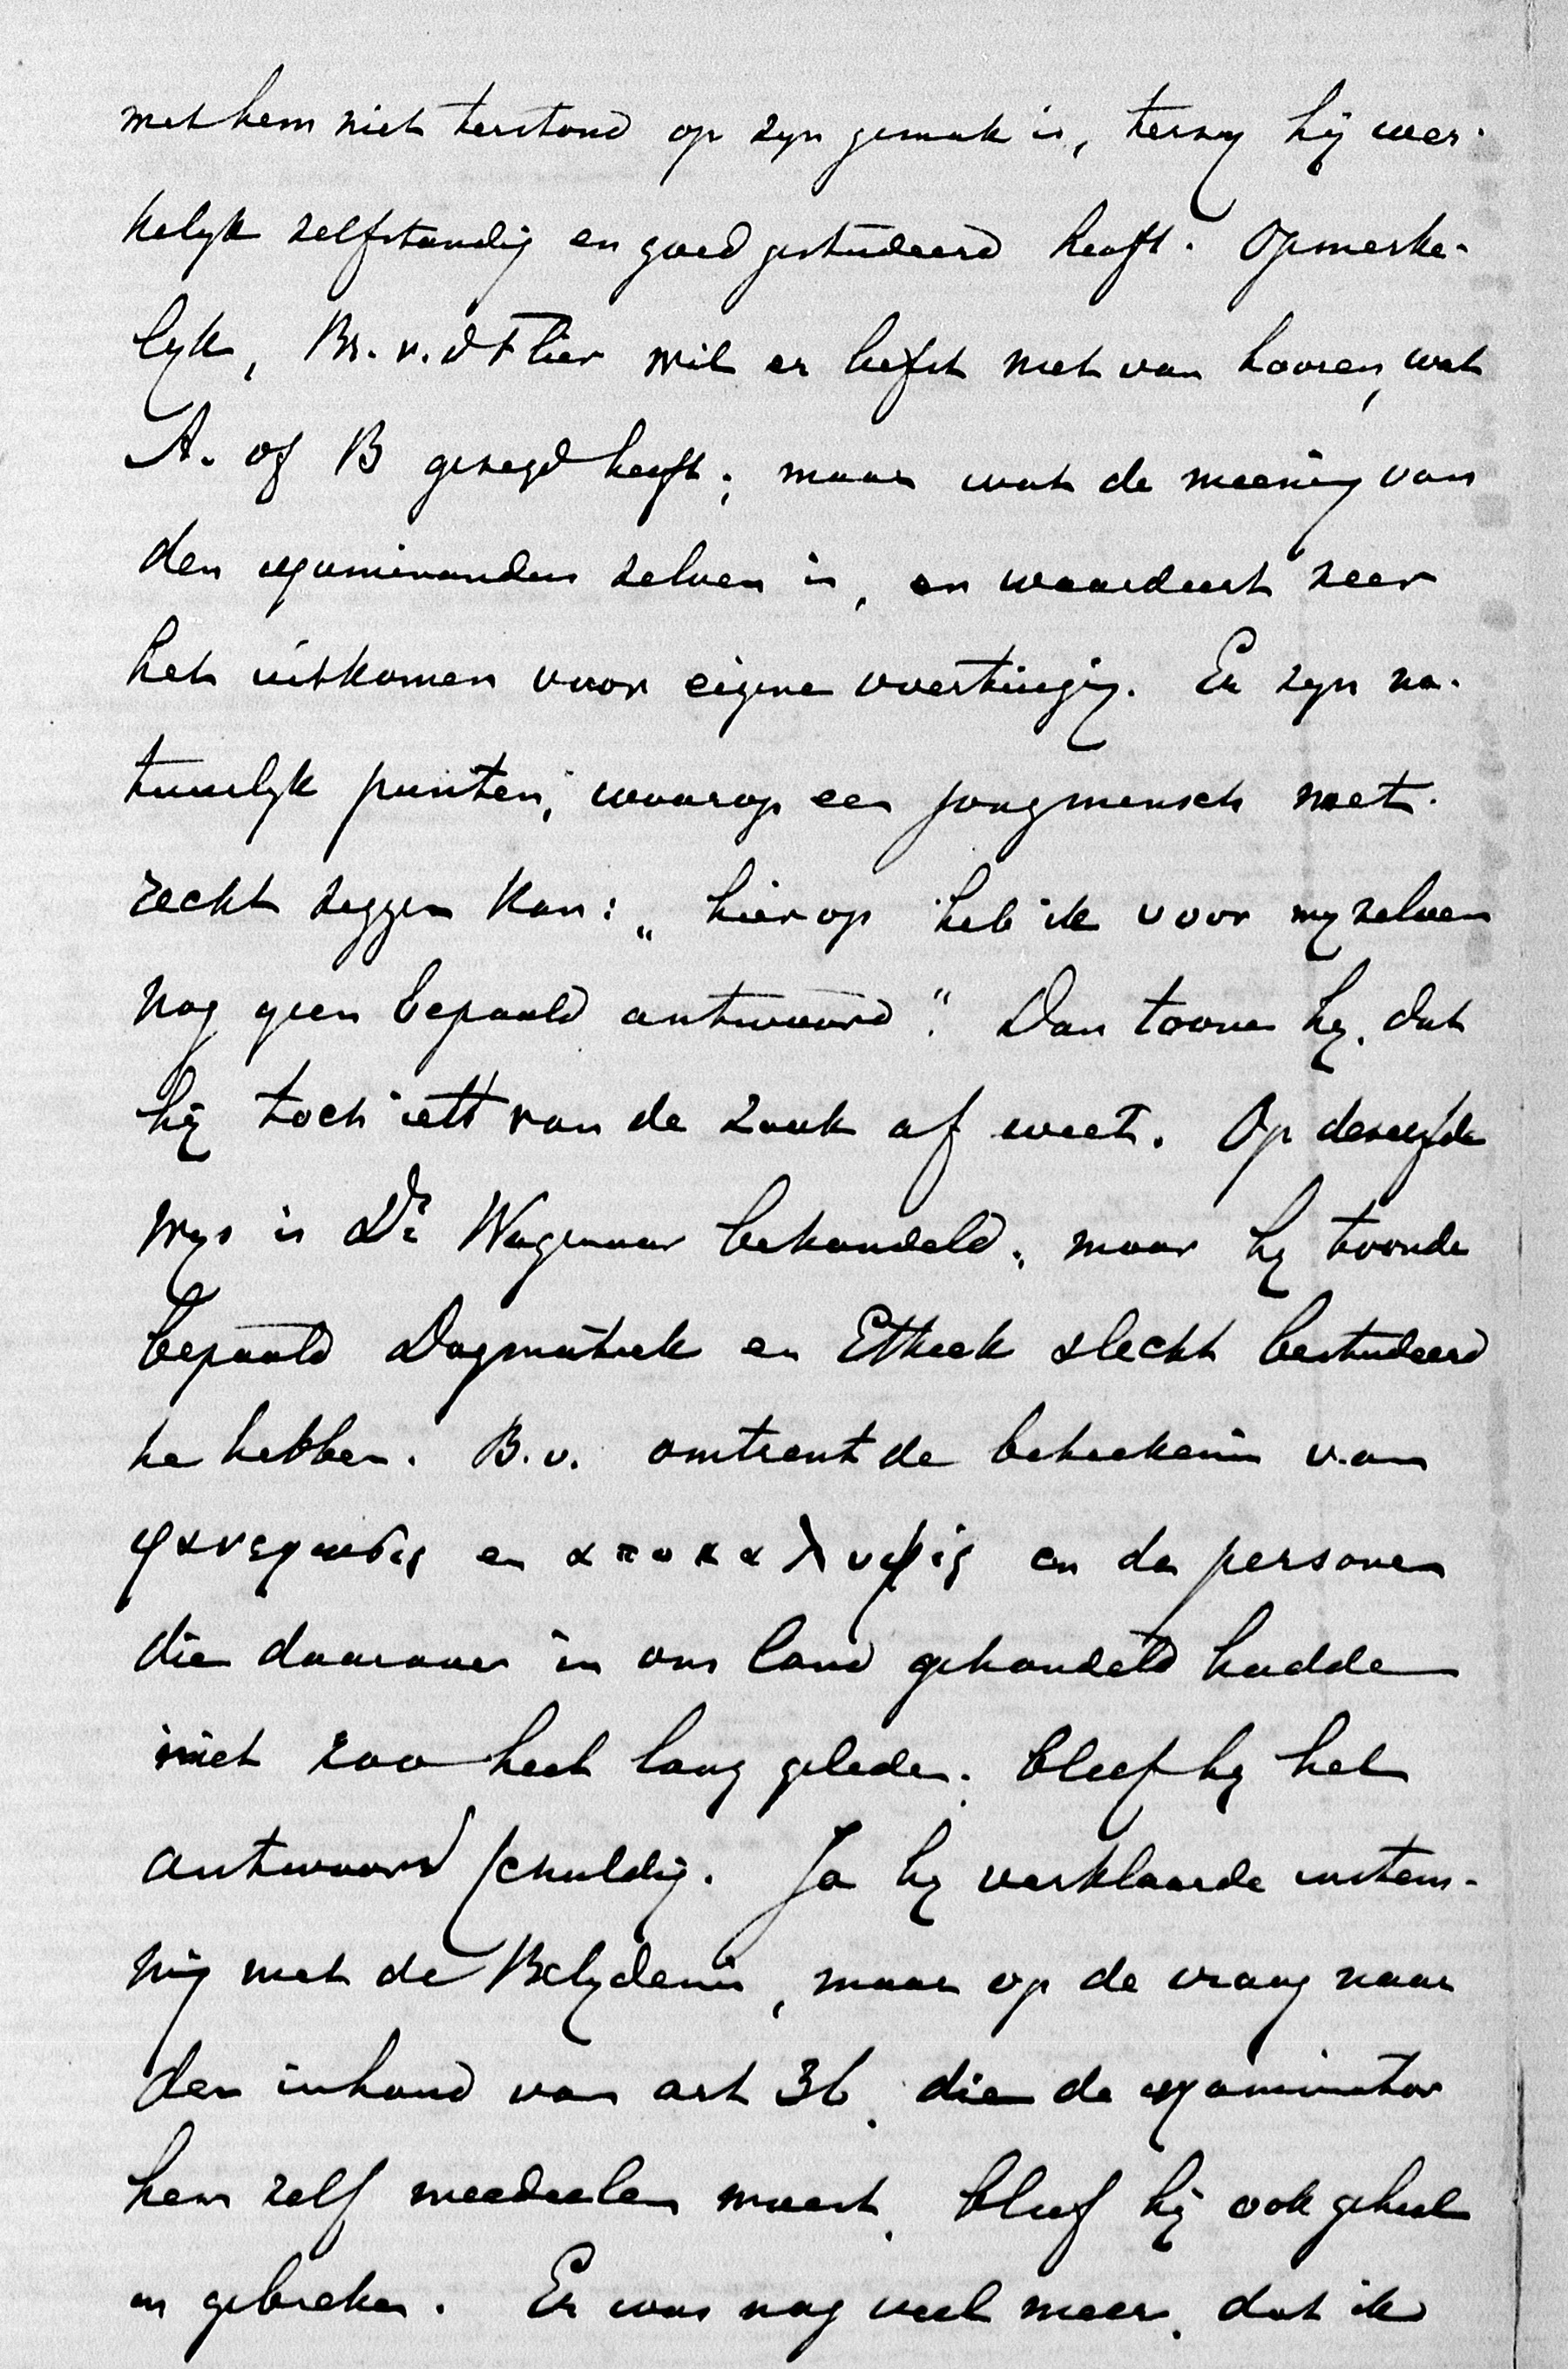 met hem niet terstond op zyn gemak is, terwyl hij wer-
kelyk zelfstandig en goed gestudeerd heeft. Opmerke-
lyk, Br. v. d Flier wil er liefst niet van hooren, wat
A. of B gezegd heeft; maar wat de meening van
den examinandus zelven is, en waardeert zeer
het uitkomen voor eigene overtuiging. Er zyn na-
tuurlyk punten, waarop een jongmensch met
recht zeggen kan: „hierop heb ik voor myzelven
nog geen bepaald antwoord". Dan toone hy, dat
hij toch iets van de zaak af weet. Op dezelfde
wys is Dr Wagenaar behandeld, maar hy toonde
bepaald Dogmatiek en Ethiek slecht bestudeerd
te hebben. B.v. omtrent de beteekenis van
φανερωσις en αποκαλυψις en de personen
die daarover in ons land gehandeld hadden
niet zoo heel lang geleden, bleef hy het
antwoord schuldig. Ja hy verklaarde instem-
ming met de Belydenis, maar op de vraag naar
den inhoud van art 36, dien de examinator
hem zelf meedeelen moest, bleef hij ook geheel
in gebreken. Er was nog veel meer, dat ik